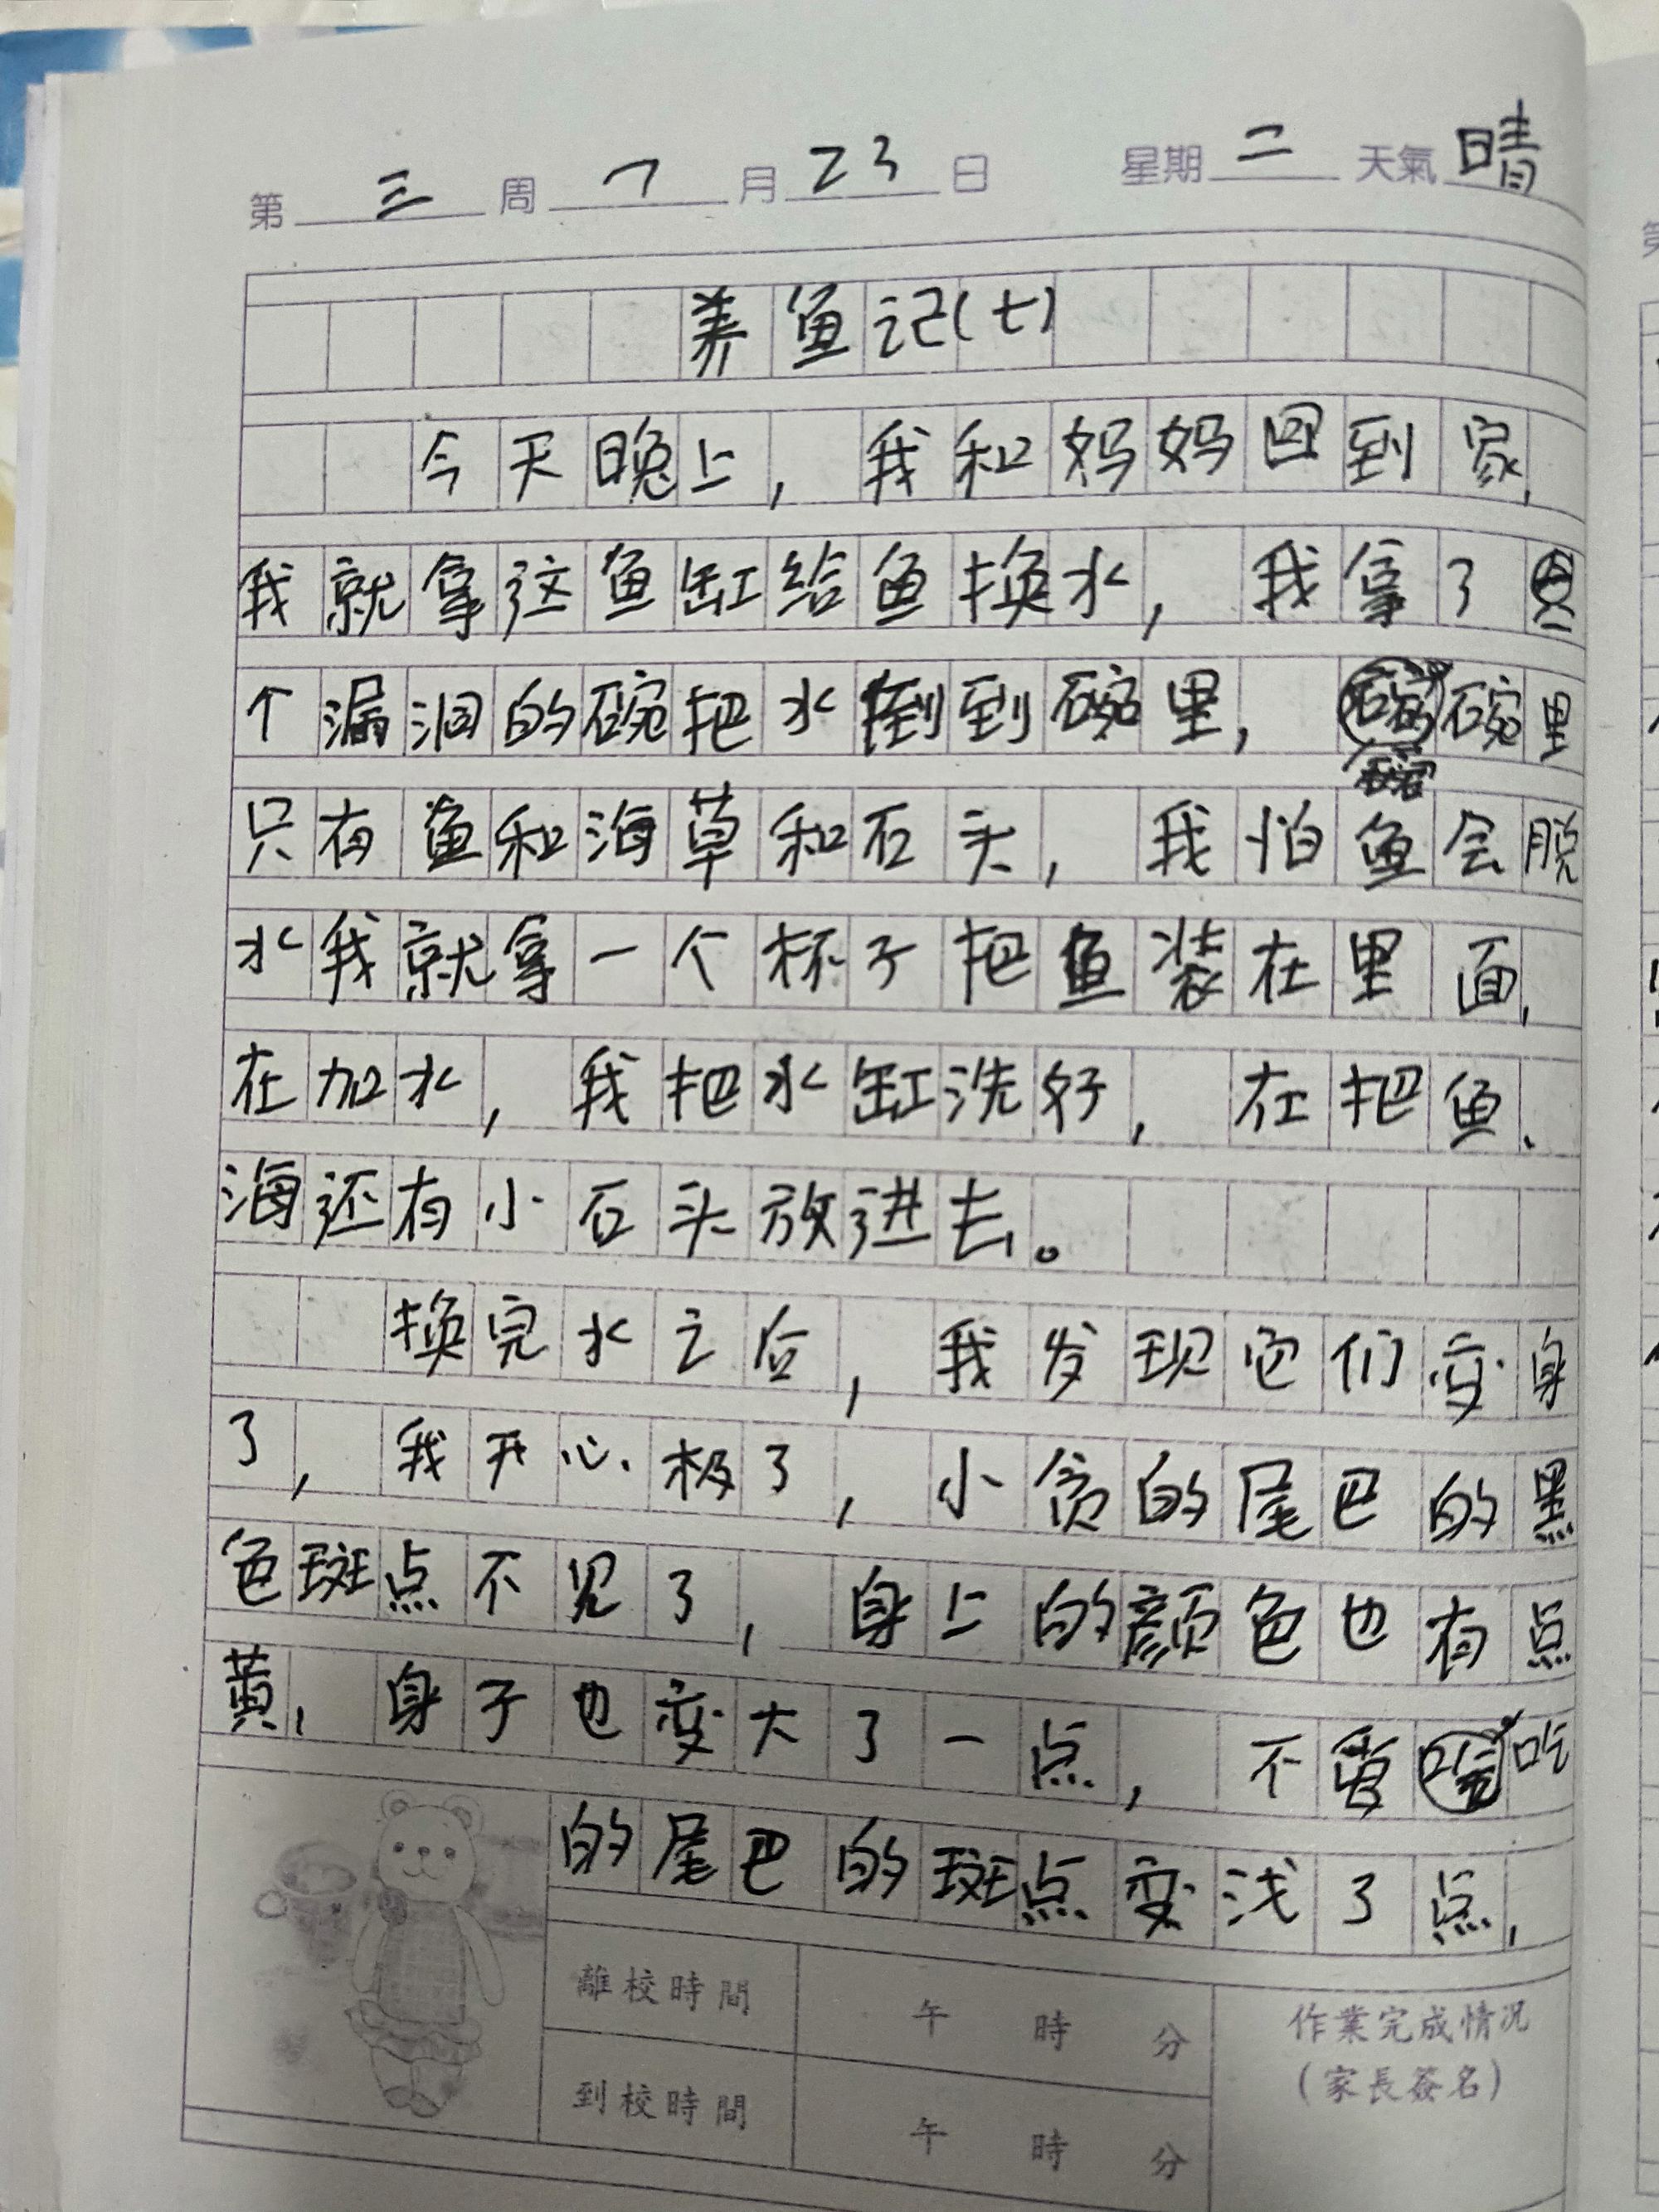 第三周7月23日 星期二天氣晴
养鱼记(七)
今天晚上，我和妈妈回到家，
我就拿这鱼缸给鱼换水，我拿了
个漏洞的碗把水倒到碗里，碗里
只有鱼和海草和石头，我怕鱼会脱
水我就拿一个杯子把鱼装在里面，
在加水，我把水缸洗好，在把鱼、
海还有小石头放进去。
换完水之后，我发现它们变身
了，我开心极了，小贪的尾巴的黑
色斑点不见了，身上的颜色也有点
黄，身子也变大了一点，不爱吃
的尾巴的斑点变浅了点，
離校時間 午 時 分
作業完成情况
(家長簽名)
到校時間 午 時 分